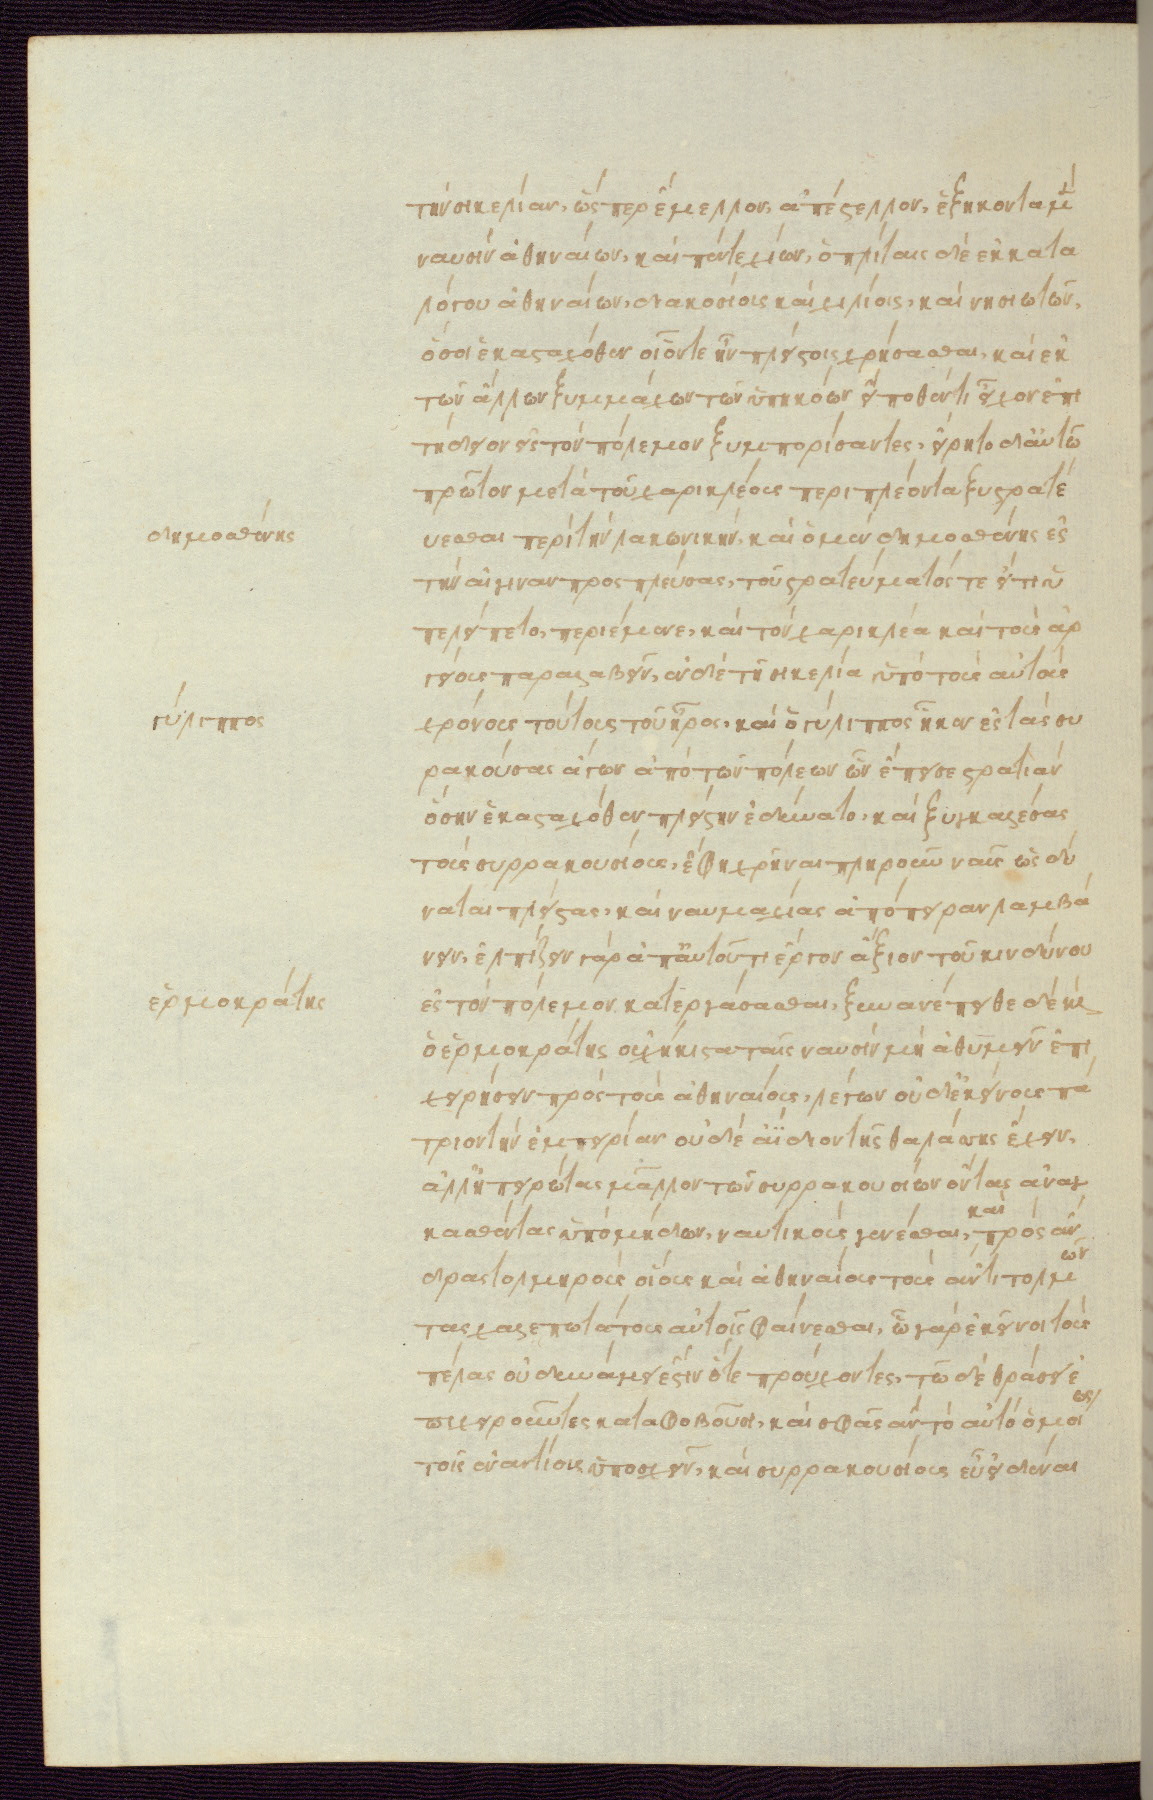 τὴν σικελίαν, ὥσπερ ἔμελλον, ἀπέστελλον, ἑξήκοντα μὲν
ναυσὶν ἀθηναίων, καὶ πέντε χίων, ὁπλίταις δὲ ἐκ κατα
λόγου ἀθηναίων, διακοσίοις καὶ χιλίοις, καὶ νησιωτῶν,
ὅσοι ἑκασταχόθεν οἷόντε ἦν πλείστοις χρήσασθαι, καὶ ἐκ
τῶν ἄλλων ξυμμάχων τῶν ὑπηκόων εἴ ποθέν τι εἶχον ἐπι
τήδειον εἰς τὸν πόλεμον ξυμπορίσαντες, εἴρητο δ' αὐτῶ
πρῶτον μετὰ τοῦ χαρικλέους περιπλέοντα ξυστρατέ
δημοσθένης
υεσθαι περὶ τὴν λακωνικήν, καὶ ὁ μὲν δημοσθένης ἐς
τὴν αἴγιναν προσπλεύσας, τοῦ στρατεύματός τε εἴ τι ὑ
πελείπετο, περιέμενε, καὶ τὸν χαρικλέα καὶ τοὺς ἀρ
γείους παραλαβεῖν, ἐν δὲ τῆ σικελία ὑπὸ τοὺς αὐτοὺς
γύλιππος
χρόνους τούτους τοῦ ἦρος, καὶ ὁ γύλιππος ἧκεν ἐς τὰς συ
ρακούσας ἄγων ἀπὸ τῶν πόλεων ὧν ἔπεισε στρατιὰν
ὅσην ἑκασταχόθεν πλείστην ἐδύνατο, καὶ ξυγκαλέσας
τοὺς συρρακουσίους, ἔφη χρῆναι πληροῦν ναῦς ὡς δύ
ναται πλείστας, καὶ ναυμαχίας ἀπόπειραν λαμβά
νειν, ἐλπίζειν γὰρ ἀπ' αὐτοῦ τι ἔργον ἄξιον τοῦ κινδύνου
ἑρμοκράτης
ἐς τὸν πόλεμον κατεργάσασθαι, ξυνανέπειθε δὲ καὶ
ὁ ἑρμοκράτης οὐχ ἥκιστα ταῖς ναυσὶν μὴ ἀθυμεῖν ἐπι
χειρήσειν πρὸς τοὺς ἀθηναίους, λέγων οὐδ' ἐκείνους πά
τριον τὴν ἐμπειρίαν οὐδὲ ἀΐδιον τῆς θαλάσσης ἔχειν,
ἀλλ' ἠπειρώτας μᾶλλον τῶν συρρακουσίων ὄντας ἀναγ
κασθέντας ὑπὸ μήδων, ναυτικοὺς γενέσθαι, καὶ πρὸς ἄν
δρας τολμηροὺς οἵους καὶ ἀθηναίους τοὺς ἀντιτολμῶν
τας χαλεπωτάτους αὐτοῖς φαίνεσθαι, ὧ γὰρ ἐκεῖνοι τοὺς
πέλας οὐ δυνάμει ἔστιν ὅτε προύχοντες, τῶ δὲ θράσει ἐ
πιχειροῦντες καταφοβοῦσι, καὶ σφᾶς ἂν τὸ αὐτὸ ὁμοίως
τοῖς ἐναντίοις ὑποσχεῖν, καὶ συρρακουσίους εὖ εἰδέναι